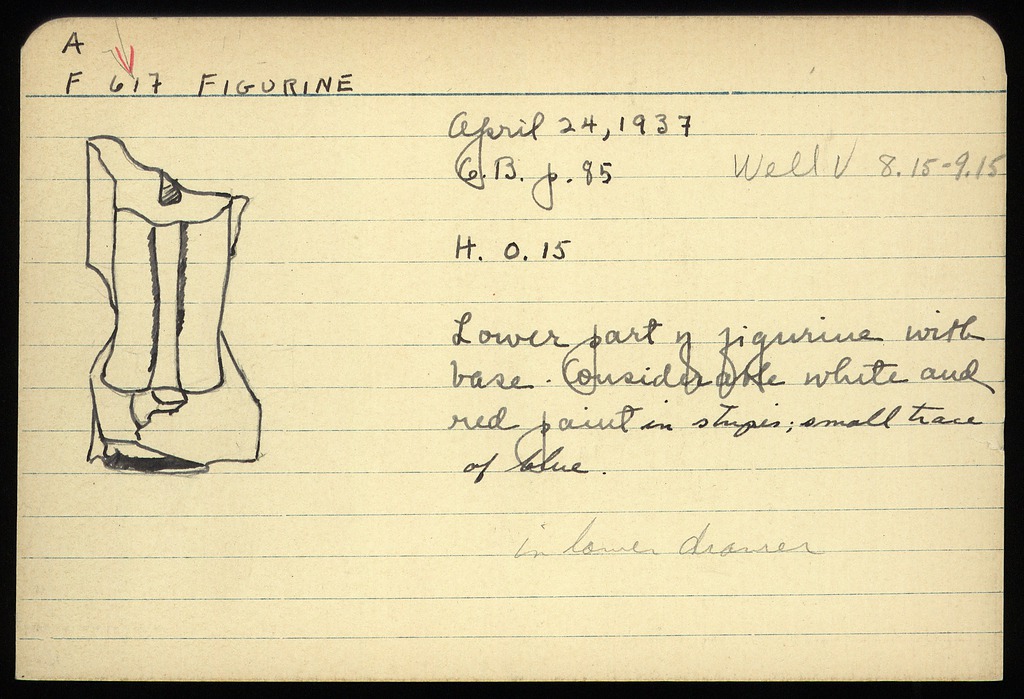 A
F 617 FIGURINE
April 24, 1937
G.B. p. 85
Well V 8.15-9.15
H. 0.15
Lower part of figurine with
base. Considerable white and
red paint in stripes; small trace
of blue.
in lower drawer